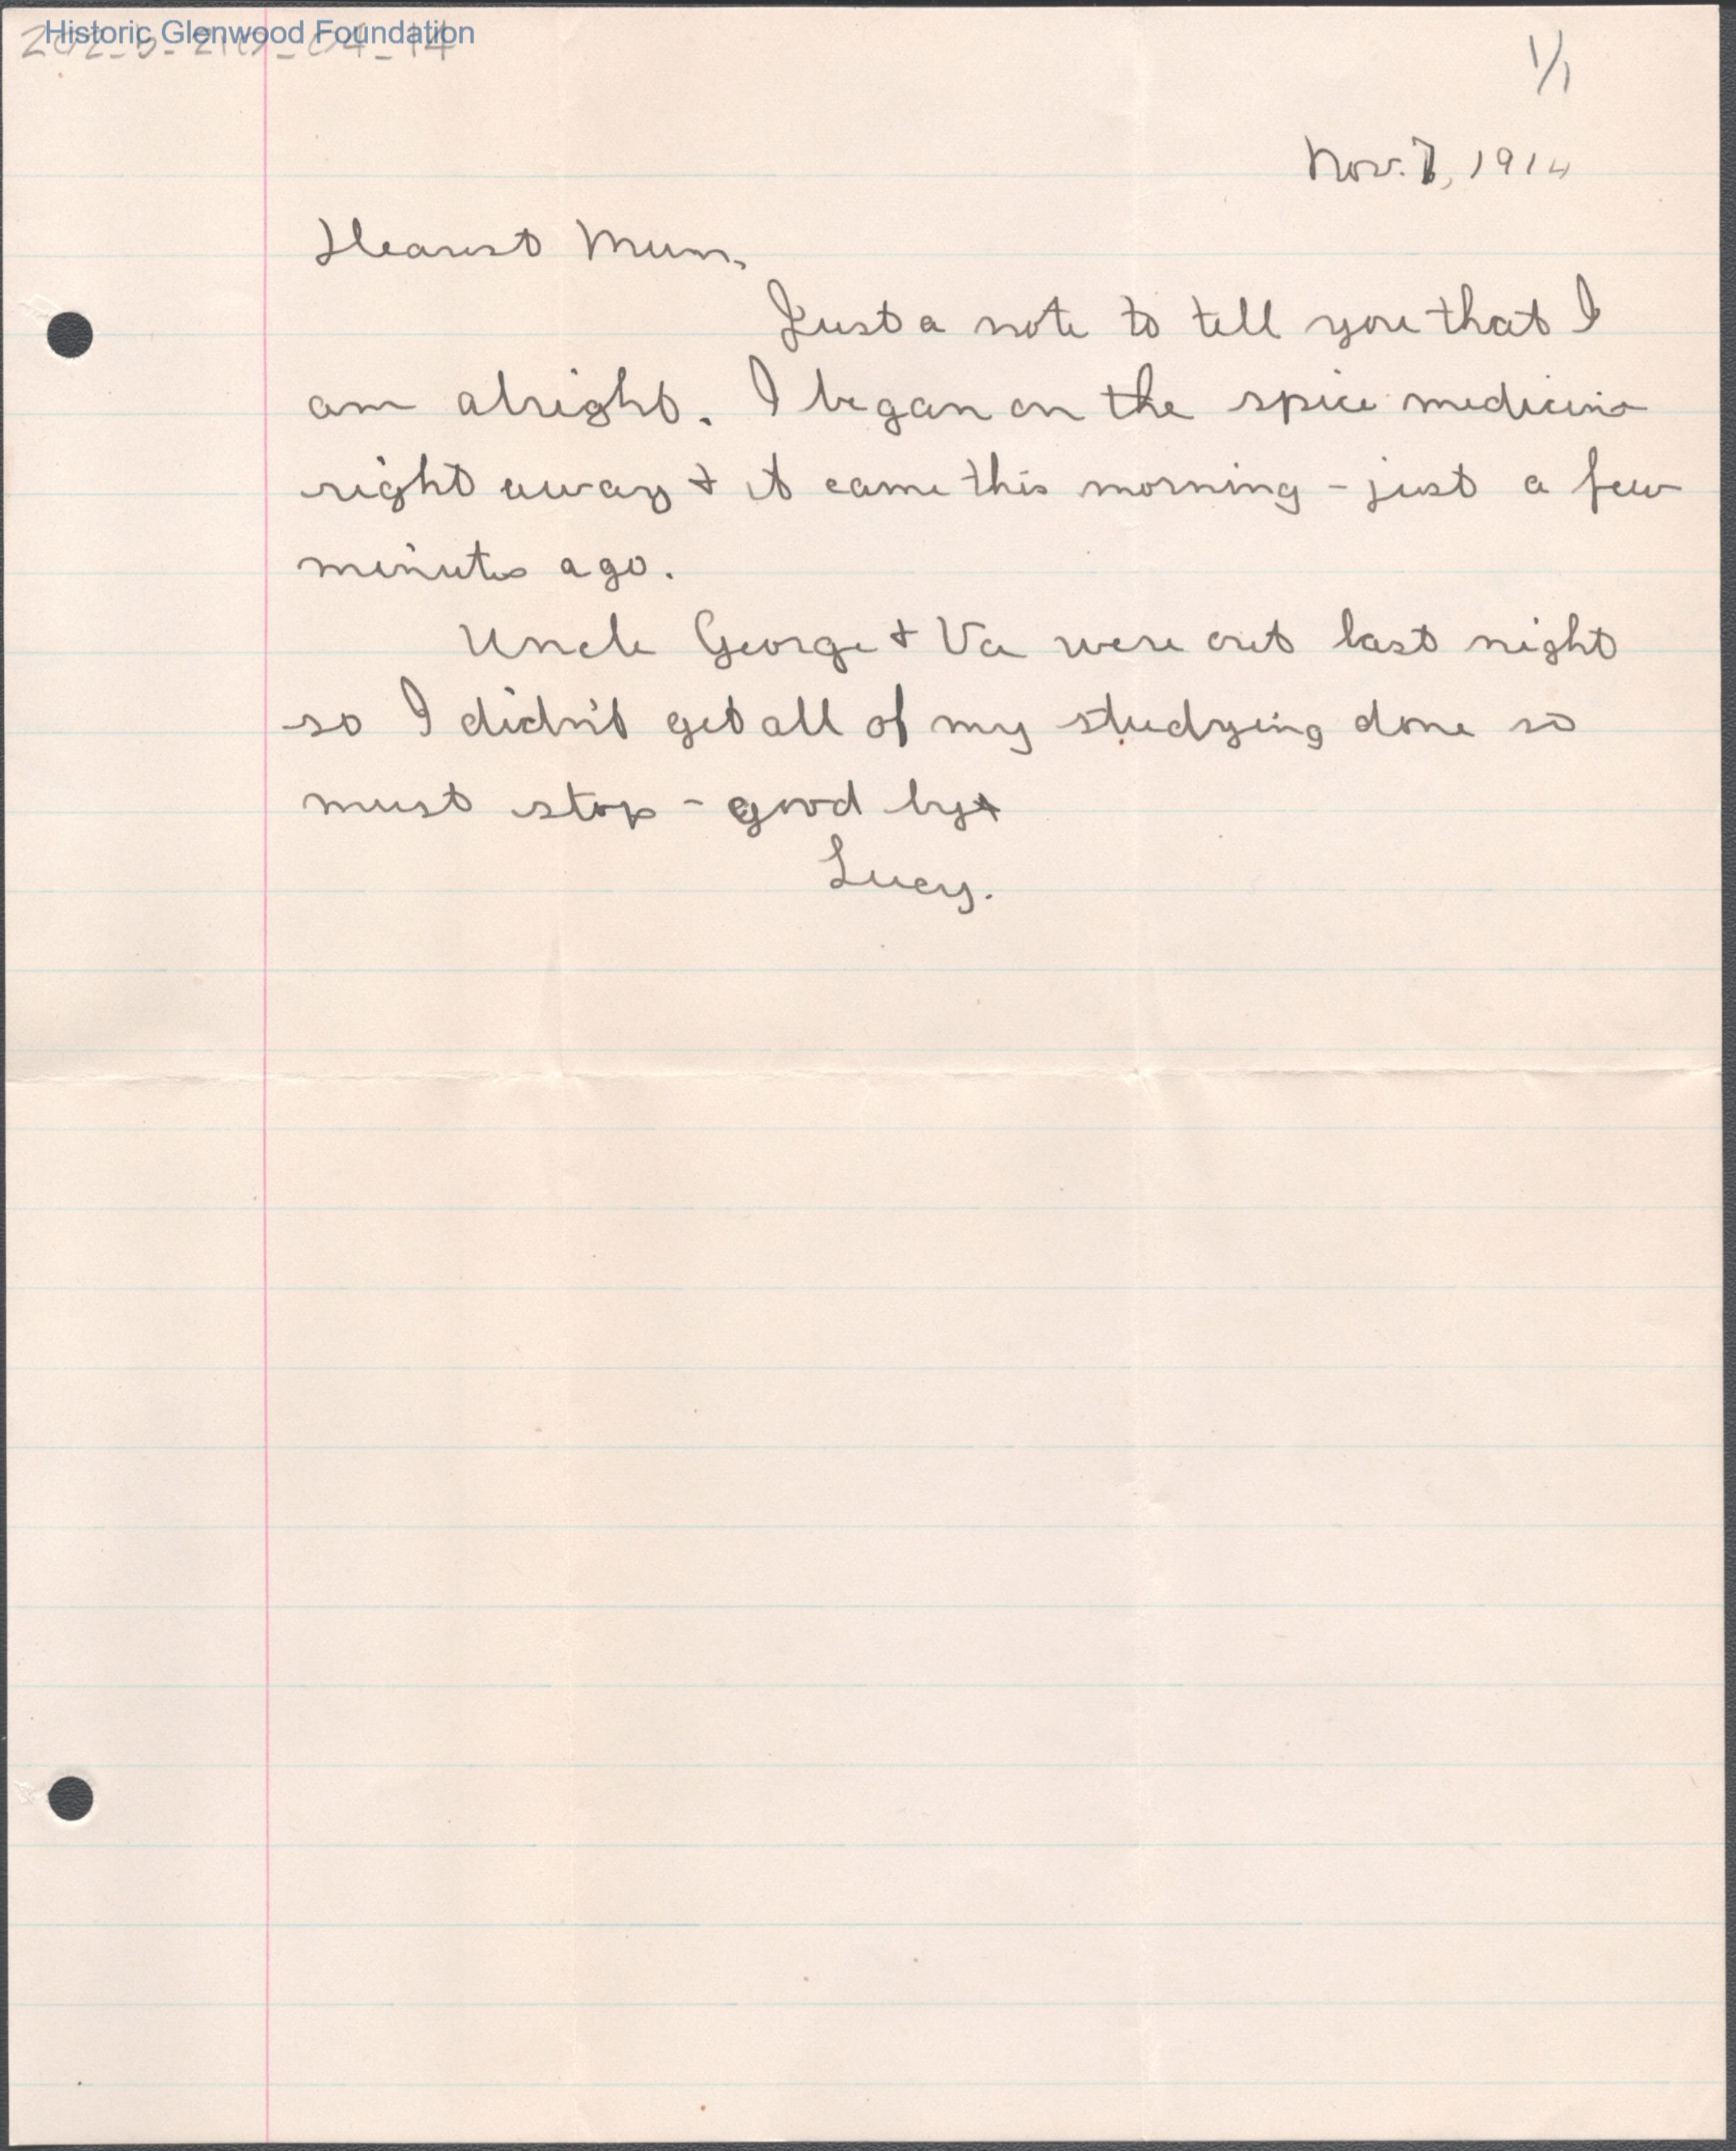 Historic Glenwood Foundation
1/1
Nov. 7, 1914
Dearest Mum,
Just a note to tell you that I
am alright. I began on the spice medicine
right away & it came this morning - just a few
minutes ago.
Uncle George & Va were out last night
so I didn't get all of my studying done so
must stop - good bye
Lucy.